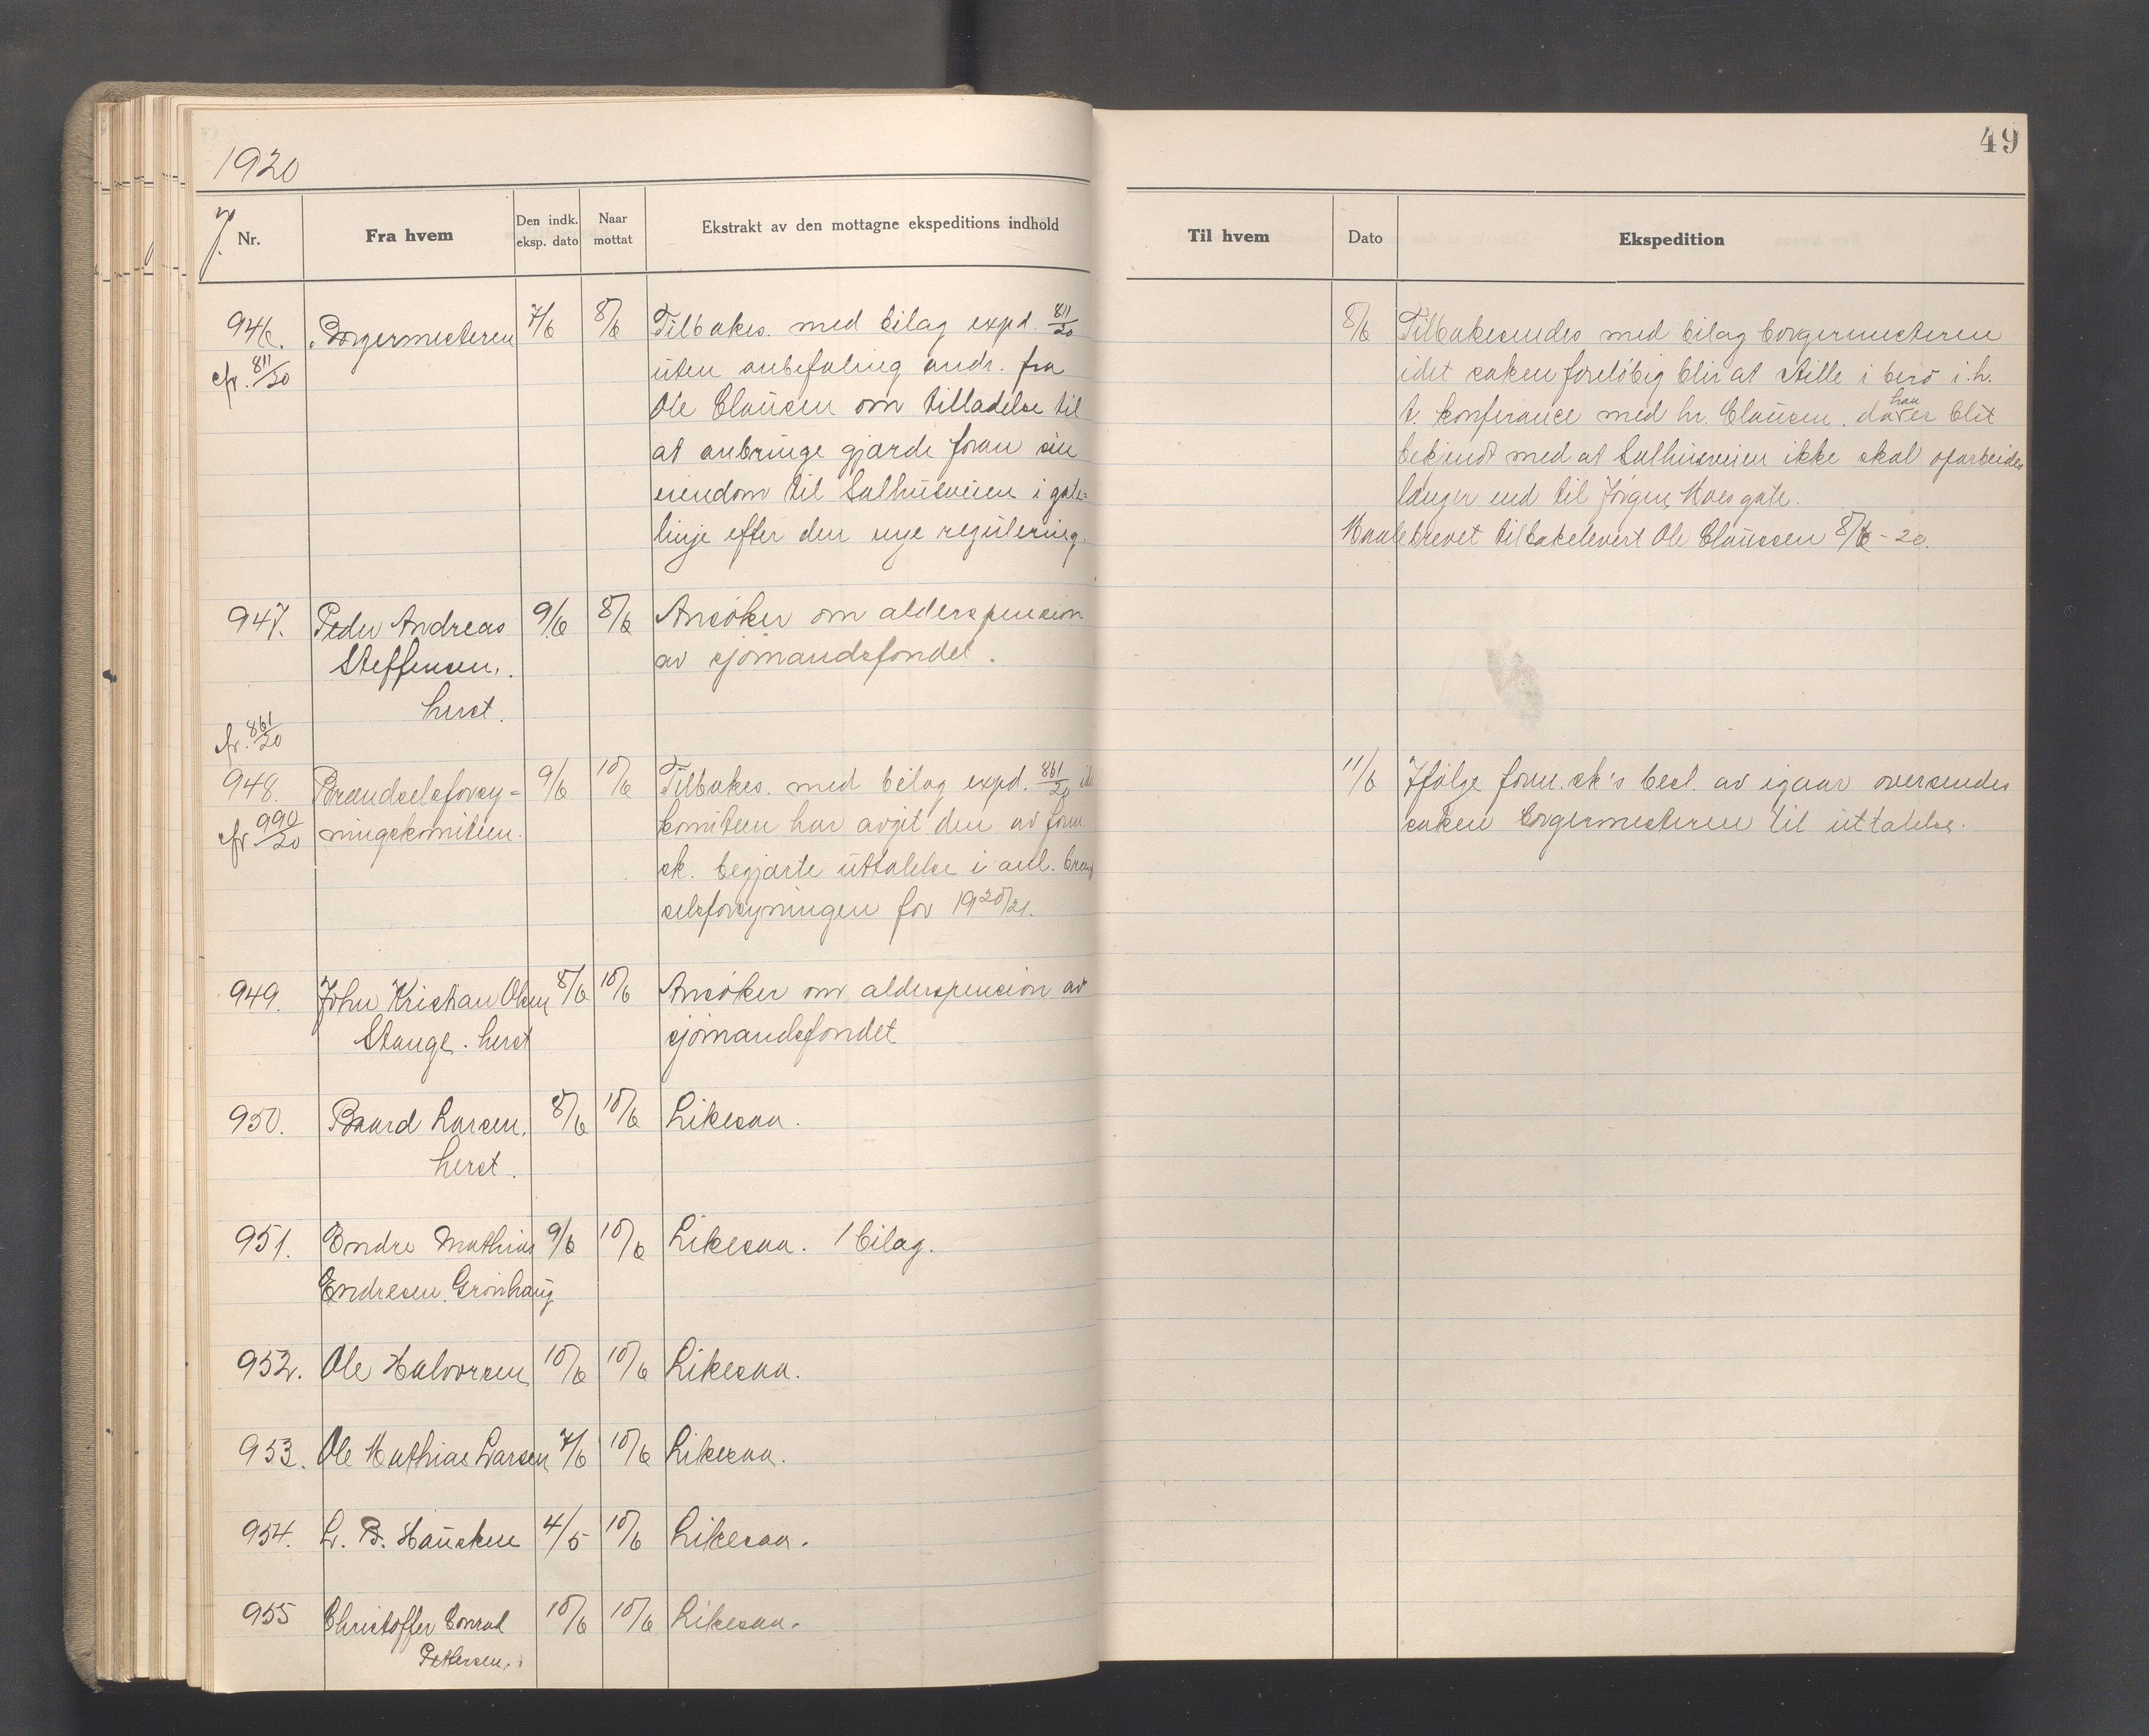 1920
49
Nr.
Fra hvem
Den indk. eksp. dato
Naar mottat
Ekstrakt av den mottagne ekspeditions indhold
Til hvem
Dato
Ekspedition
946. Borgermesteren 7/6 8/6 Tilbakes. med bilag expd. 811/20
cfr. 811/20
uten anbefaling andr. fra
Ole Claüsen om tilladelse til
at anbringe gjærde foran sin
eiendom til Salhüsveien i gate=
linje efter den nye regülering.
8/6 Tilbakesendes med bilag borgermesteren
idet saken foreløbig blir at stille i bero i.h.
t. konferance med hr. Claüsen, da han er blit
bekjendt med at Salhüsveien ikke skal oparbeides
længer end til Jørgen Moes gate.
Maalebrevet tilbakelevert Ole Claüssen 8/6 - 20.
947. Peder Andreas 9/6 8/6 Ansøker om alderspension
Steffensen, av sjømandsfondet.
herst.
cfr. 861/20
948. Brændselsforsy= 9/6 10/6 Tilbakes. med bilag expd. 861/20 idet
cfr 990/20 ningskomiteen. komiteen har avgit den av form.
sk. begjærte üttalelse i anl. brænd
selsforsyningen for 1920/21.
11/6 Ifølge form.sk's besl. av igaar oversendes
saken borgermesteren til üttalelse.
949. John Kristian Olsen 8/6 10/6 Ansøker om alderspension av
Stange. herst sjømandsfondet
950. Baard Larsen, 8/6 10/6 Likesaa.
herst.
951. Endre Mathias 9/6 10/6 Likesaa. 1 bilag.
Endresen Grønhaüg
952. Ole Halvorsen 10/6 10/6 Likesaa.
953. Ole Mathias Larsen 7/6 10/6 Likesaa.
954. L. B. Haüsken 4/5 10/6 Likesaa.
955 Christoffer Conrad 10/6 10/6 Likesaa.
Pettersen.